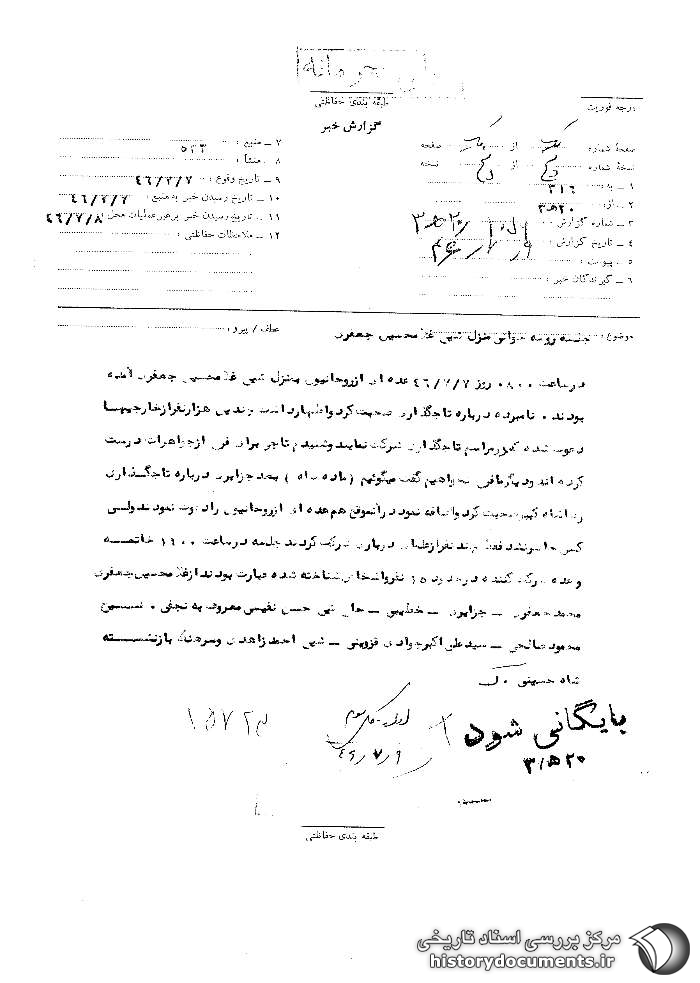 محرمانه
طبقه بندی حفاظتی
گزارش خبر
درجه فوریت
صفحهٔ شماره یک از یک صفحه
نسخهٔ شماره از نسخه
۱ ــ به: ۳۱۶
۲ ــ از: ۲۰ ه‍ ۳
۳ ــ شماره گزارش: ۲۰ ه‍ ۳
۴ ــ تاریخ گزارش:
۵ ــ پیوست:
۶ ــ گیرندگان خبر:
۷ ــ منبع: ۵۲۳
۸ ــ منشأ:
۹ ــ تاریخ وقوع: ۴۶/۷/۷
۱۰ ــ تاریخ رسیدن خبر به منبع: ۴۶/۷/۷
۱۱ ــ تاریخ رسیدن خبر به رهبر عملیات محل: ۴۶/۷/۸
۱۲ ــ ملاحظات حفاظتی:
موضوع: جلسه روضه خوانی منزل شیخ غلامحسین جعفری
عطف / پیرو:
در ساعت ۰۸۰۰ روز ۴۶/۷/۷ عده ای از روحانیون بمنزل شیخ غلامحسین جعفری آمده
بودند . نامبرده درباره تاجگذاری صحبت کرد و اظهار داشت چندین هزار نفر از خارجیها
دعوت شده که در مراسم تاجگذاری شرکت نمایند و شنیدم تاجر برای فرح از جواهرات درست
کرده اند و دیگر مافی خواهیم گفت میگوئیم ( ماده شاه ) بعد جزایری درباره تاجگذاری
رضاشاه کبیر صحبت کرد و اضافه نمود در آنموقع هم عده ای از روحانیون را دعوت نمودند ولی
کسی حاضر نشد فقط چند نفر از علمای درباری شرکت کردند جلسه در ساعت ۱۱۰۰ خاتمه
و عده شرکت کننده در حدود ۱۵ نفر و اشخاص شناخته شده عبارت بودند از غلامحسین جعفری
محمد جعفری ــ جزایری ــ خطیبی ــ حاج شیخ حسن نفیسی معروف به نجفی .
محمود صالحی ــ سید علی اکبر جوادی قزوینی ــ شیخ احمد زاهدی و سرهنگ بازنشسته
شاه حسینی . ک
بایگانی شود
۲۰ ه‍ ۳
۴۶/۷/۹
۱۵۷۲۳
طبقه بندی حفاظتی
مرکز بررسی اسناد تاریخی
historydocuments.ir